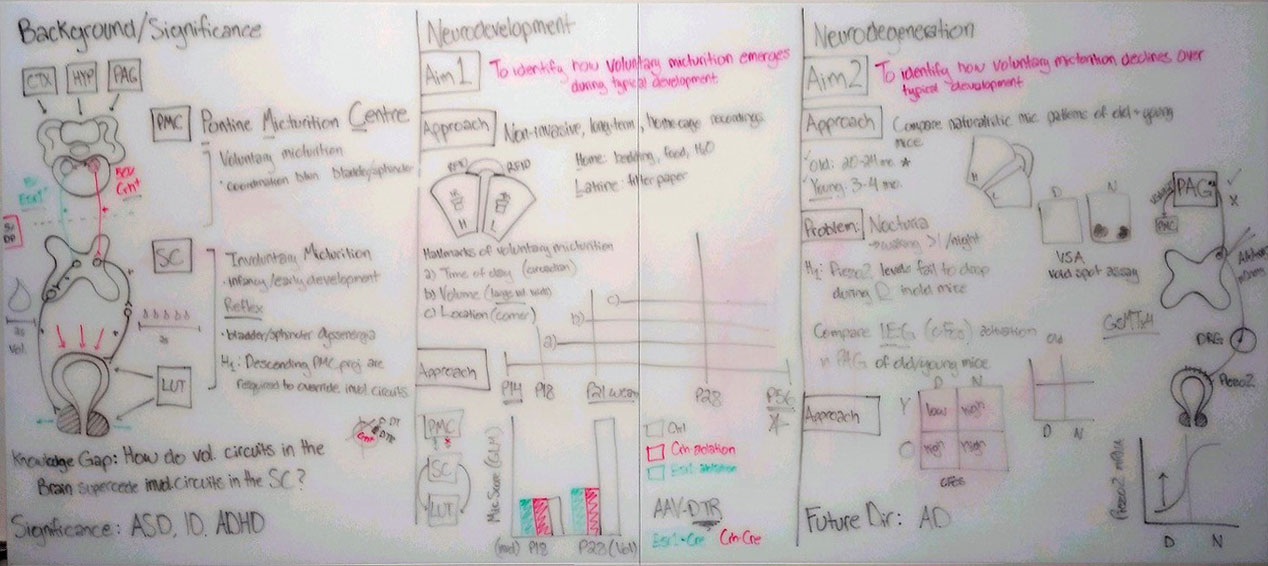 Background/Significance
CTX HYP PAG
PMC Pontine Micturition Centre
Voluntary micturition
coordination btwn bladder/sphincter
Esr1+
Crh+
SC Involuntary Micturition
Infancy/early development
Reflex
bladder/sphincter dyssynergia
H1: Descending PMC proj are
required to override invol circuits
LUT
Vol.
Knowledge Gap: How do vol. circuits in the
Brain supercede invol. circuits in the SC?
Significance: ASD, ID, ADHD
Neurodevelopment
Aim 1 To identify how voluntary micturition emerges
during typical development
Approach Non-invasive, long-term, homecage recordings
RFID RFID
H L
Home: bedding, food, H2O
Latrine: filter paper
Hallmarks of voluntary micturition
a) Time of day (circadian)
b) Volume (large vol voids)
c) Location (corner)
c)
b)
a)
Approach
P14 P18 P21 wean P28 P56
PMC
SC
LUT
Mic Score (GLM)
(invol) P18 P28 (Vol)
Ctrl
Crh ablation
Esr1 ablation
AAV-DTR
Esr1-Cre Crh-Cre
Neurodegeneration
Aim 2 To identify how voluntary micturition declines over
typical development
Approach Compare naturalistic mic patterns of old + young
mice
Old: 20-24 mo. *
Young: 3-4 mo.
H
L
D N
VSA
void spot assay
Problem: Nocturia
waking >1/night
H1: Piezo2 levels fail to drop
during D in old mice
Compare IEG (cFos) activation
in PAG of old/young mice
Old
D N
Approach
D N
Y low high
O high high
cFos
PAG
PMC
X
DRG
Piezo2
Piezo2 mRNA
D N
Future Dir: AD